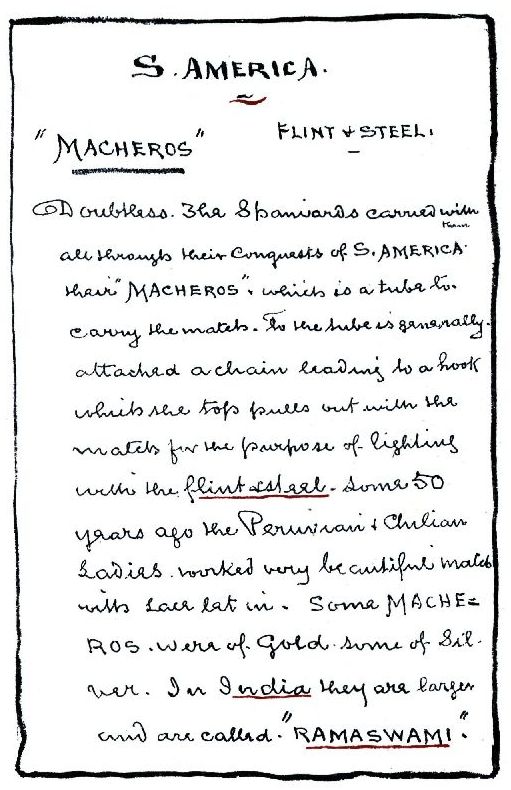 S. AMERICA.
"MACHEROS"
FLINT & STEEL.
Doubtless. The Spaniards carried with
them
all through their Conquests of S. AMERICA.
their "MACHEROS". which is a tube to.
carry the match. To the tube is generally.
attached a chain leading to a hook
which the top pulls out with the
match for the purpose of lighting
with the flint & steel. Some 50
years ago the Peruvian & Chilian
Ladies. worked very beautiful match
with Lace let in. Some MACHE=
ROS. were of Gold some of Sil-
ver. In India they are larger
and are called. "RAMASWAMI".